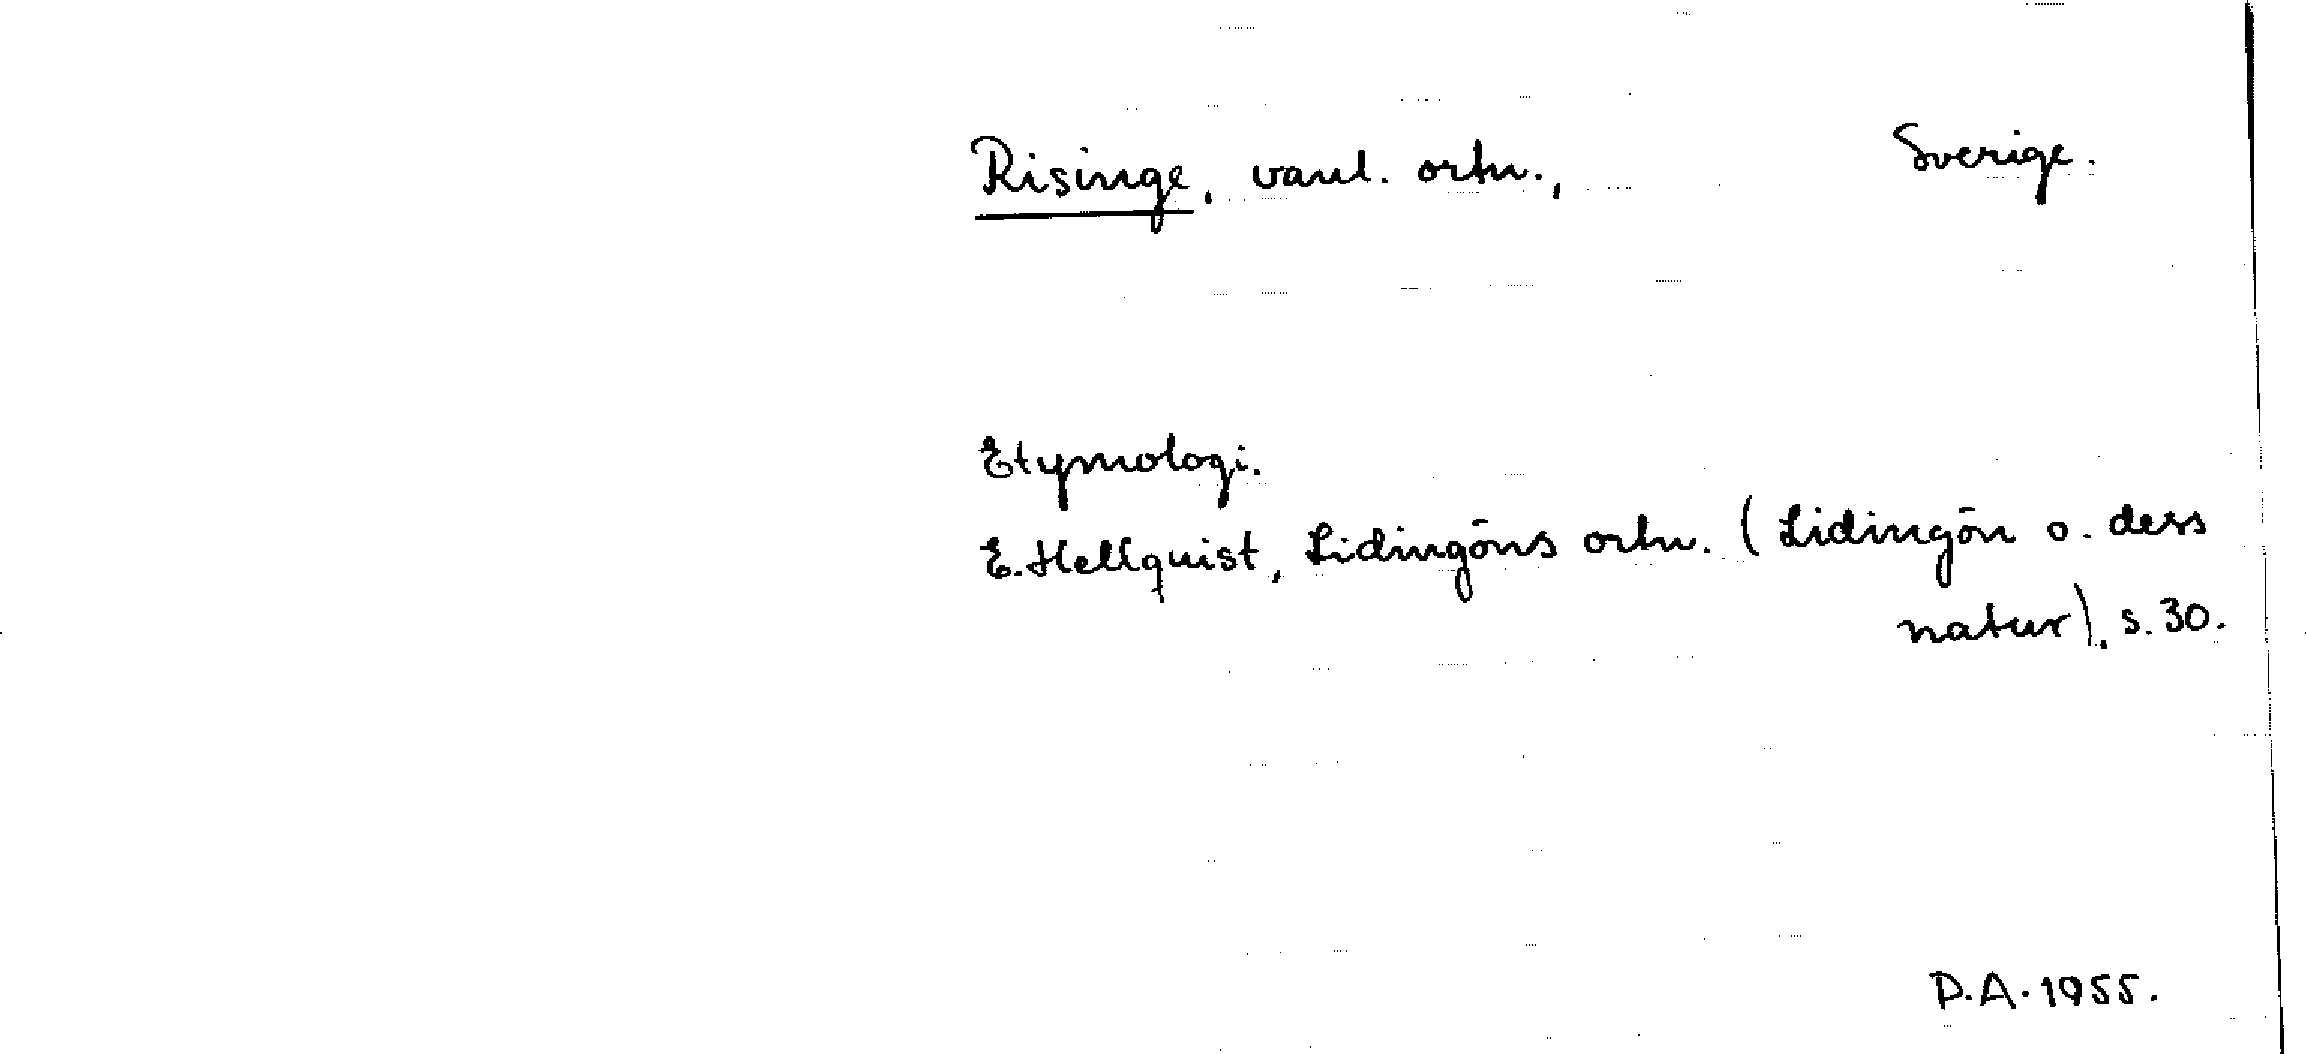 Risinge, vanl. ortn., Sverige.
Etymologi.
E. Hellquist, Lidingöns ortn. (Lidingön o. dess
natur), s. 30.
D.A. 1955.